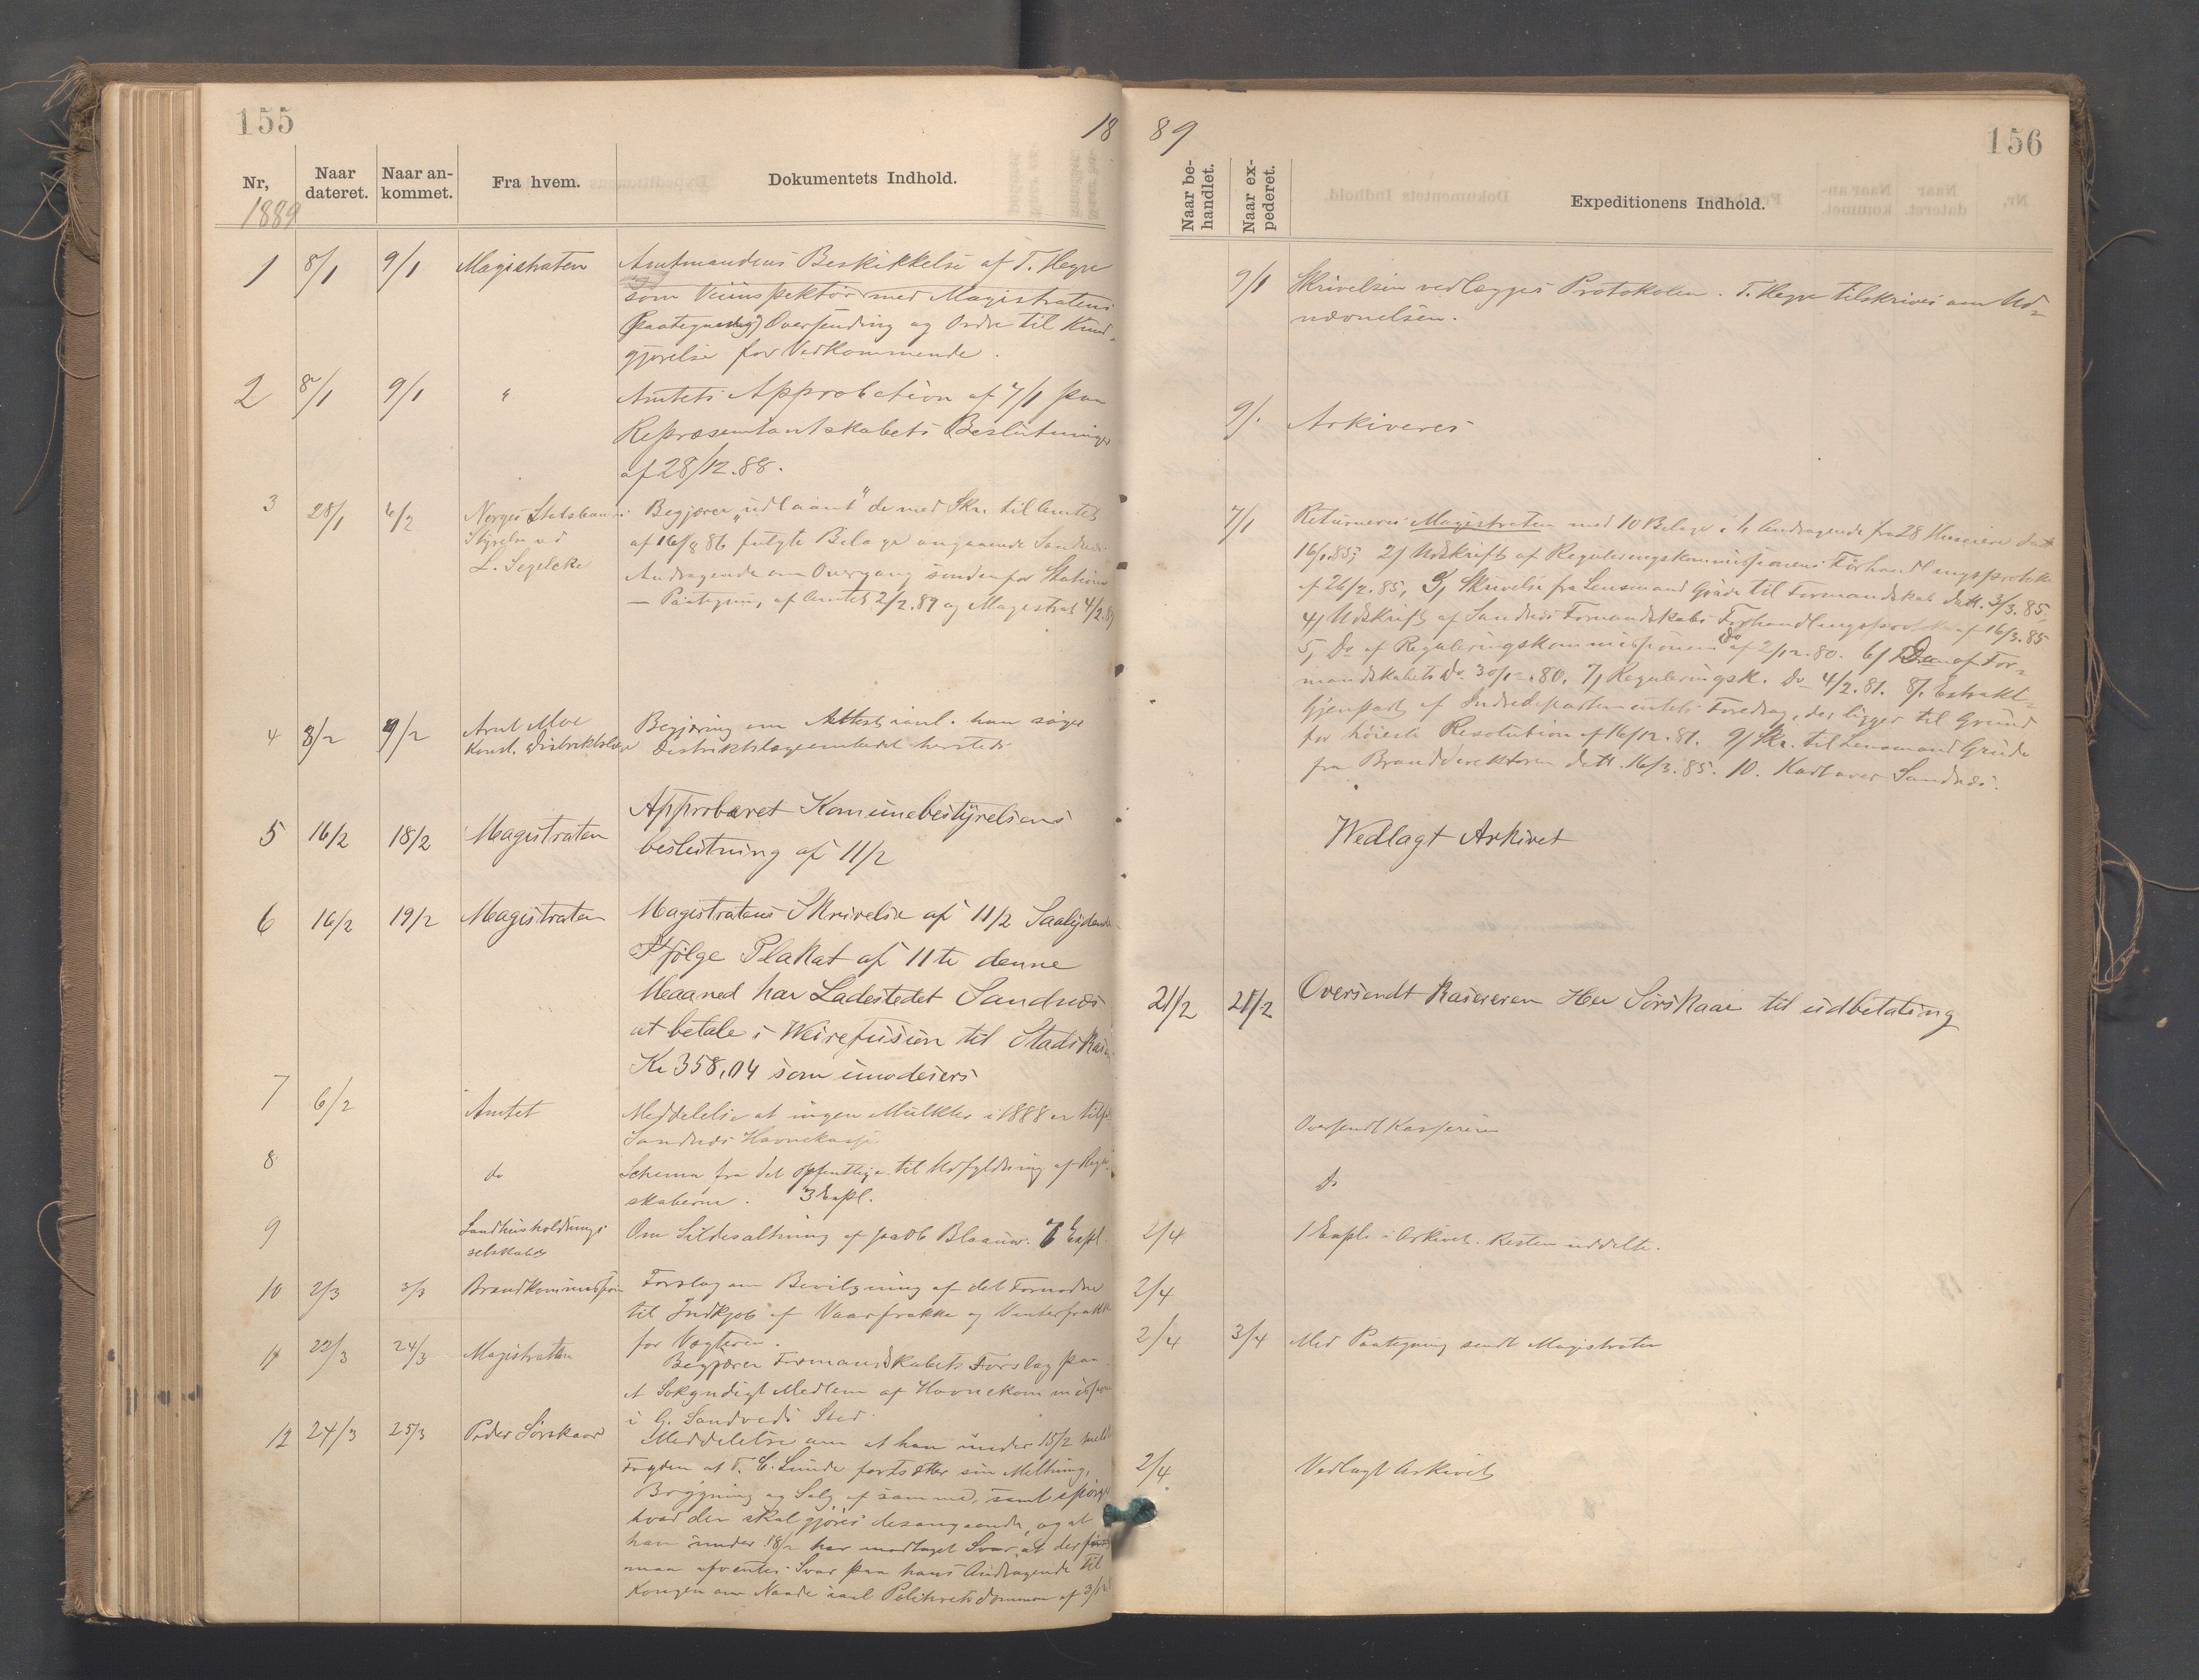 155
18
Nr,
Naar dateret.
Naar ankommet.
Fra hvem.
Dokumentets Indhold.
1889
1 8/1 9/1 Magistraten Amtmandens Beskikkelse af T. Hegre
som Veiinspektør med Magistratens
Paategning Oversending og Ordre til Kund-
gjørelse for Vedkommende.
2 8/1 9/1 " Amtets Approbation af 7/1 paa
Repræsentantskabets Beslutninger
af 28/12.88.
3 28/1 6/2 Norges Statsbaners Begjærer "udlaant" de med Skr. til Amtet
Styrelse ved af 16/8 86 fulgte Bilage angaaende Sandnes
L. Segelcke Andragende om Overgang søndenfor Station
— Paategning af Amtet 2/2.89 og Magistrat 4/2.89
4 8/2 9/2 Arnt Moe Begjæring om Attest ianl. han søger
Konst. Distriktslæge Distriktslægeembedet hersteds
5 16/2 18/2 Magistraten Approberet Komunebestyrelsens
beslutning af 11/2
6 16/2 19/2 Magistraten Magistratens Skrivelse af 11/2 Saalydende
Ifølge Plakat af 11te denne
Maaned har Ladestedet Sandnes
at betale i Veirefusion til Stadskasse
Kr 358,04 som imødesees
7 6/2 Amtet Meddelelse at ingen Mulkter i 1888 er tilf.
Sandnes Havnekasse
8 do Schema fra det offentlige til Udfyldning af Regn-
skaberne. 3 Expl.
9 Landhusholdnings Om Sildesaltning af Jacob Blaauw. 7 Expl.
selskabet
10 2/3 3/3 Brandkommission Forslag om Bevilgning af det Fornødne
til Indkjøb af Vaarfrakke og Vinterfrakke
for Vægteren.
11 22/3 24/3 Magistraten Begjærer Formandskabets Forslag paa
et Søkyndigt Medlem af Havnekommission
i G. Sandveds Sted.
12 24/3 25/3 Peder Sørskaar Meddelelse om at han under 15/2 meldt
Fogden at T. C. Lunde fortsætter sin Meltning,
Brygning og Salg af samme, samt spørger
hvad der skal gjøres desangaaende, og at
han under 18/2 har modtaget Svar at der først
maa afventes Svar paa hans Andragende til
Kongen om Naade ianl Politiretsdommen af
89
156
Naar behandlet.
Naar expederet.
Expeditionens Indhold.
9/1 Skrivelsen vedlægges Protokolen. T. Hegre tilskrives om Ud-
nævnelsen.
9/1 Arkiveres
7/1 Returneres Magistraten med 10 Bilage: 1, Andragende fra 28 Huseiere dat
16/1.85; 2/ Udskrift af Reguleringskommissionens Forhandlingsprotokol
af 26/2.85, 3, Skrivelse fra Lensmand Gjøde til Formandskab datt. 3/3.85,
4, Udskrift af Sandnes Formandskabs Forhandlingsprotokol af 16/3.85
5, Do af Reguleringskommissionens Do af 2/12.80. 6/ Do af For-
mandskabets Do 30/12.80, 7, Reguleringsk. Do 4/2.81. 8/. Extrakt-
Gjenpart af Indredepartementets Foredrag, der ligger til Grund
for høieste Resolution af 16/12.81. 9/ Skr. til Lensmand Gjøde
fra Branddirektøren datt. 16/3.85. 10. Kart over Sandnes.
Vedlagt Arkivet
21/2 21/2 Oversendt Kasereren Her Sørskaar til udbetaling
Oversendt Kassereren
do
2/4 1 Expl. i Arkivet. Resten uddelte.
2/4
2/4 3/4 Med Paategning sendt Magistraten
2/4 Vedlagt Arkivet